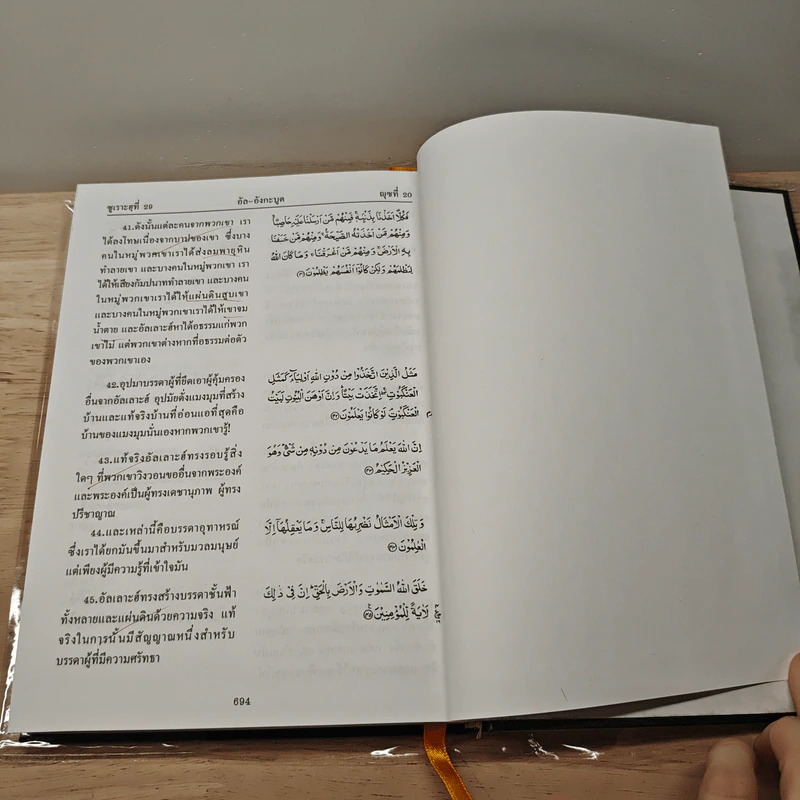 ซูเราะฮุที่ 29
อัล-อังกะบูต
ญุซที่ 20
41.ดังนั้นแต่ละคนจากพวกเขา เรา
ได้ลงโทษเนื่องจากบาปของเขา ซึ่งบาง
คนในหมู่พวกเขาเราได้ส่งลมพายุหิน
ทำลายเขา และบางคนในหมู่พวกเขา เรา
ได้ให้เสียงกัมปนาททำลายเขา และบางคน
ในหมู่พวกเขาเราได้ให้แผ่นดินสูบเขา
และบางคนในหมู่พวกเขาเราได้ให้เขาจม
น้ำตาย และอัลเลาะฮ์หาได้อธรรมแก่พวก
เขาไม่ แต่พวกเขาต่างหากที่อธรรมต่อตัว
ของพวกเขาเอง
فَكُلًّا اَخَذْنَا بِذَنْبِهٖ فَمِنْهُمْ مَّنْ اَرْسَلْنَا عَلَيْهِ حَاصِبًا
وَمِنْهُمْ مَّنْ اَخَذَتْهُ الصَّيْحَةُ وَمِنْهُمْ مَّنْ خَسَفْنَا
بِهِ الْاَرْضَ وَمِنْهُمْ مَّنْ اَغْرَقْنَا وَمَا كَانَ اللّٰهُ
لِيَظْلِمَهُمْ وَلٰكِنْ كَانُوْٓا اَنْفُسَهُمْ يَظْلِمُوْنَ
42.อุปมาบรรดาผู้ที่ยึดเอาผู้คุ้มครอง
อื่นจากอัลเลาะฮ์ อุปมัยดั่งแมงมุมที่สร้าง
บ้านและแท้จริงบ้านที่อ่อนแอที่สุดคือ
บ้านของแมงมุมนั่นเองหากพวกเขารู้!
مَثَلُ الَّذِيْنَ اتَّخَذُوْا مِنْ دُوْنِ اللّٰهِ اَوْلِيَآءَ كَمَثَلِ
الْعَنْكَبُوْتِ اِتَّخَذَتْ بَيْتًا وَاِنَّ اَوْهَنَ الْبُيُوْتِ لَبَيْتُ
الْعَنْكَبُوْتِ لَوْ كَانُوْا يَعْلَمُوْنَ
43.แท้จริงอัลเลาะฮ์ทรงรอบรู้สิ่ง
ใดๆ ที่พวกเขาวิงวอนขออื่นจากพระองค์
และพระองค์เป็นผู้ทรงเดชานุภาพ ผู้ทรง
ปรีชาญาณ
اِنَّ اللّٰهَ يَعْلَمُ مَا يَدْعُوْنَ مِنْ دُوْنِهٖ مِنْ شَيْءٍ وَهُوَ
الْعَزِيْزُ الْحَكِيْمُ
44.และเหล่านี้คือบรรดาอุทาหรณ์
ซึ่งเราได้ยกมันขึ้นมาสำหรับมวลมนุษย์
แต่เพียงผู้มีความรู้ที่เข้าใจมัน
وَتِلْكَ الْاَمْثَالُ نَضْرِبُهَا لِلنَّاسِ وَمَا يَعْقِلُهَآ اِلَّا
الْعٰلِمُوْنَ
45.อัลเลาะฮ์ทรงสร้างบรรดาชั้นฟ้า
ทั้งหลายและแผ่นดินด้วยความจริง แท้
จริงในการนั้นมีสัญญาณหนึ่งสำหรับ
บรรดาผู้ที่มีความศรัทธา
خَلَقَ اللّٰهُ السَّمٰوٰتِ وَالْاَرْضَ بِالْحَقِّ اِنَّ فِيْ ذٰلِكَ
لَاٰيَةً لِّلْمُؤْمِنِيْنَ
694